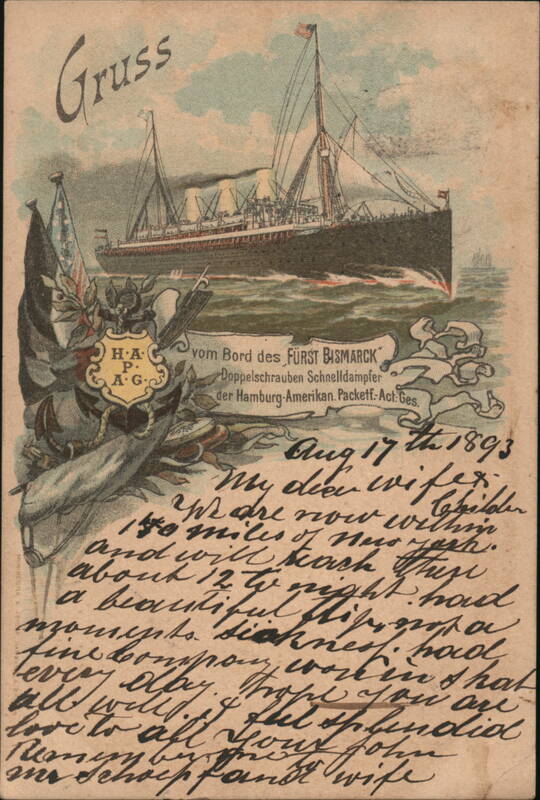 Gruss
H·A·
P·
A·G·
vom Bord des „FÜRST BISMARCK"
Doppelschrauben Schnelldampfer
der Hamburg-Amerikan. Packetf.-Act. Ges.
Aug 17th 1893
My dear wife &
Childer
We are now within
150 miles of New York.
and will reach there
about 12 to night. had
a beautiful trip. not a
moments sickness. had
fine Company won in s hat
every day. hope you are
all well. I feel splendid
love to all your John
Remember me to
mr Schoepf and wife